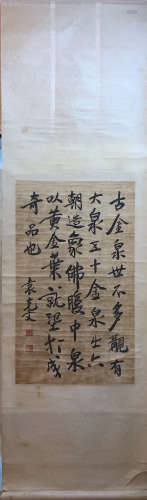 古金泉世不多觀有
大泉五十金泉生六
朝造象佛腹中泉
以黃金葉就望抝成
奇品也 袁克文